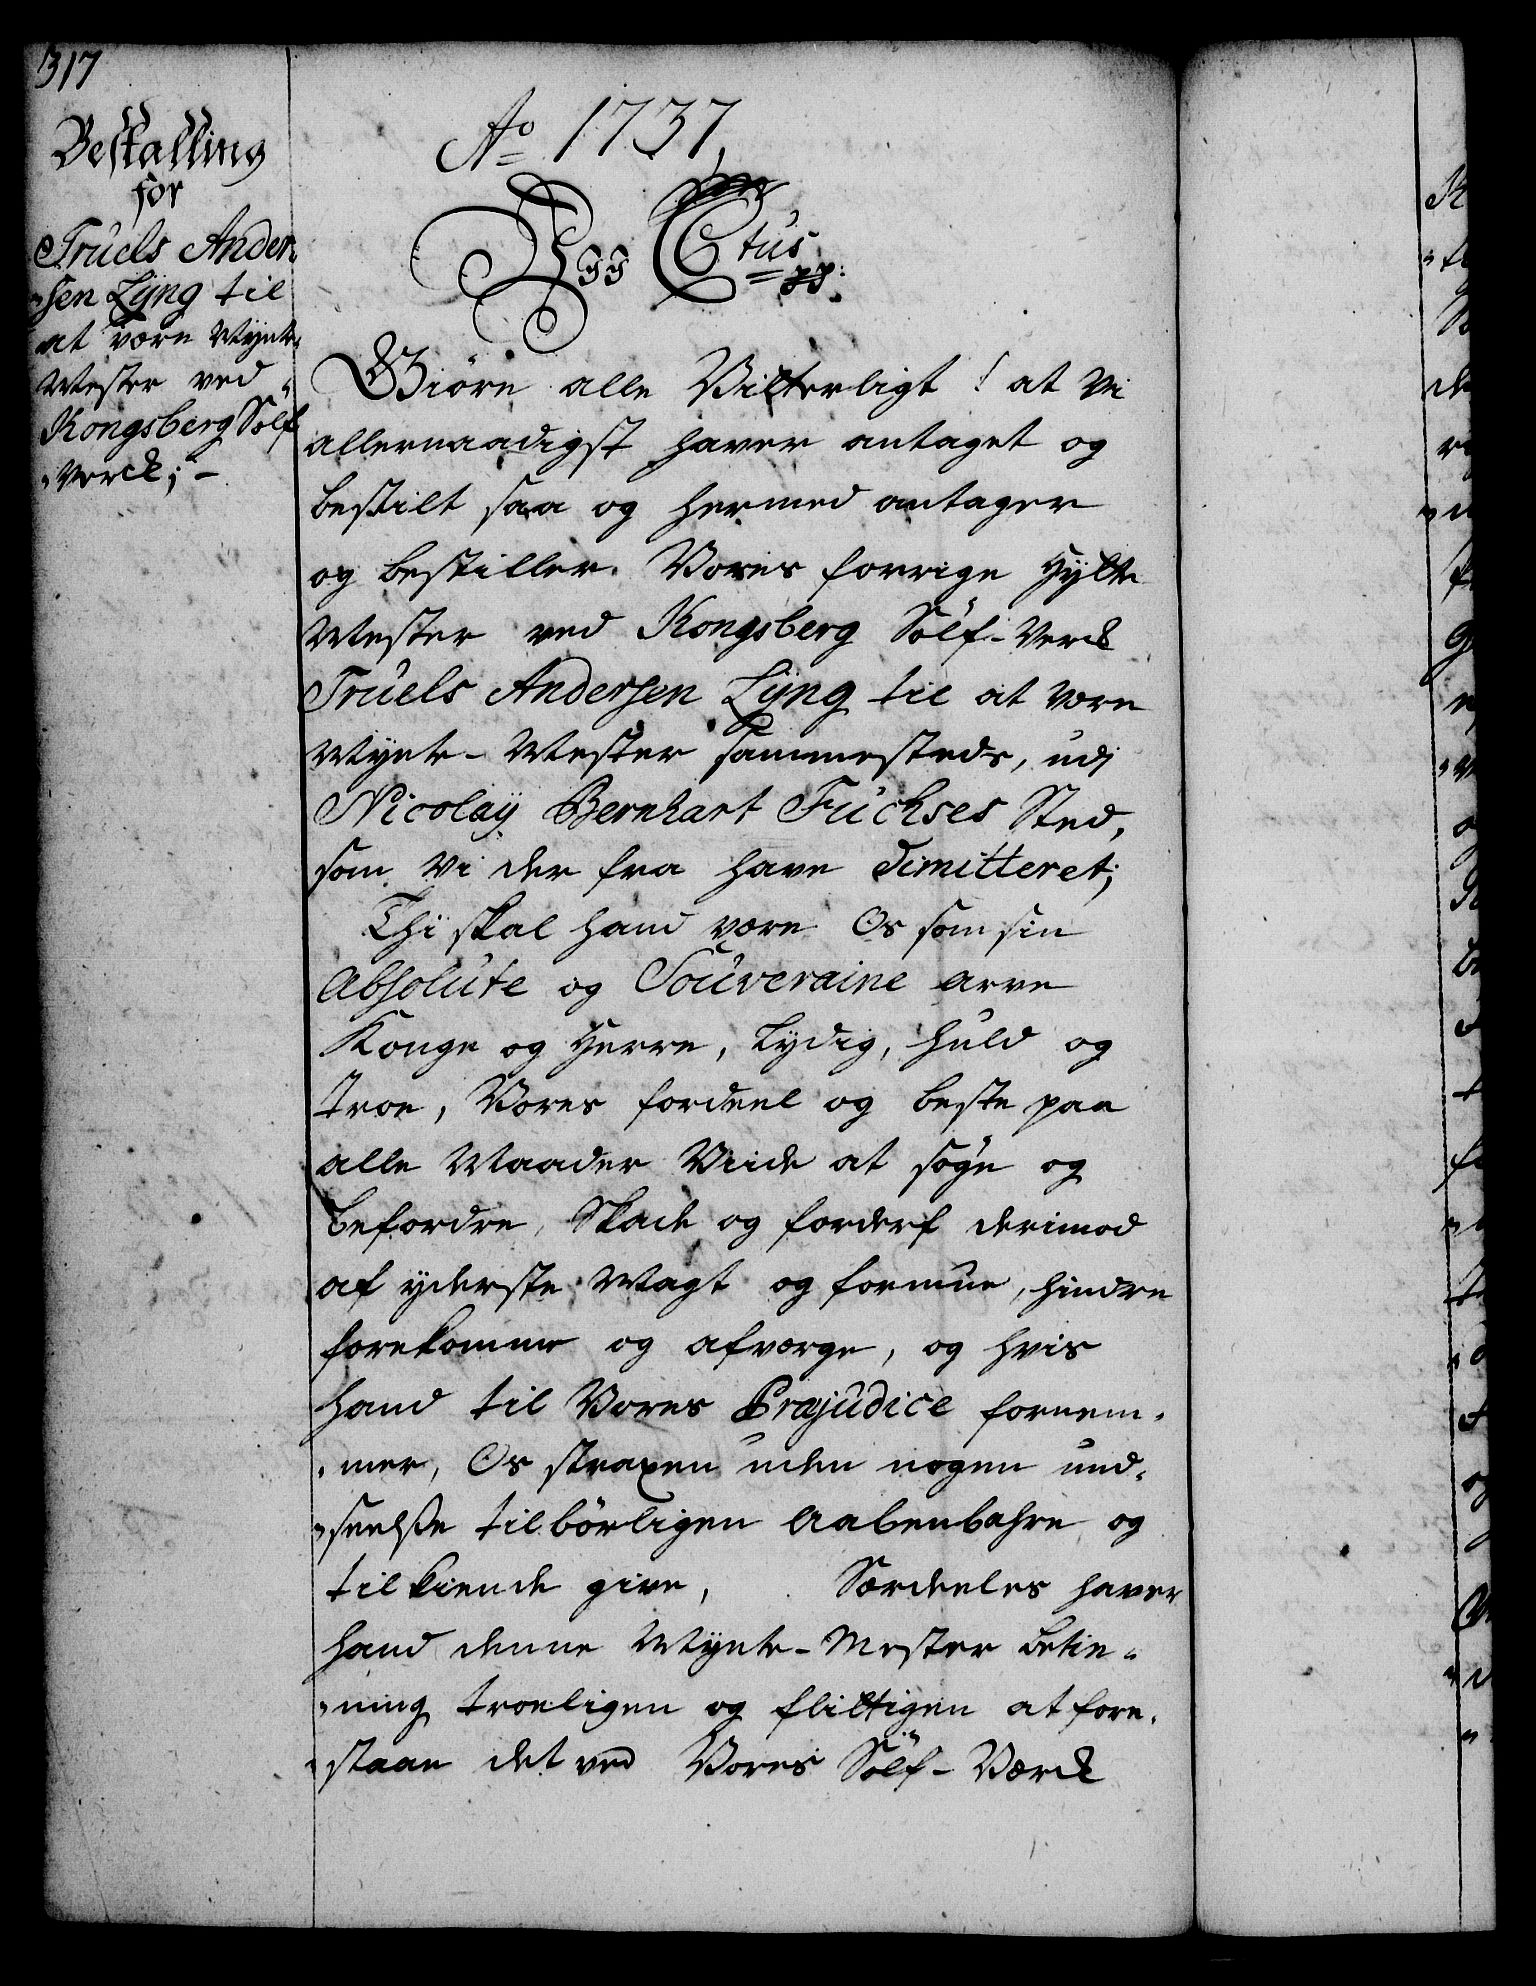 317
Bestalling
for
Truels Ander-
sen Lyng til
at være Mynt-
Mester ved
Kongsberg Sölf
Verck; -
Ao 1737,
Vii Ctus
pp:
Giöre alle Vitterligt! at Vi
allernaadigst haver antaget og
bestilt saa og hermed antager
og bestiller Vores forrige Hytte
Mester ved Kongsberg Sölf-Verck
Truels Andersen Lÿng til at være
Mynte-Mester sammesteds, udj
Nicolaÿ Bernhart Fuchses Sted,
som Vi der fra have dimitteret;
Thi skal hand være Os som sin
Absolute og Souveraine arve
Konge og Herre, Lydig, huld og
troe, Vores fordeel og beste paa
alle Maader Viide at søge og
befordre, Skade og forderf derimod
af yderste Magt og formue, hindre
forekomme og afværge, og hvis
hand til Vores Præjudice fornem-
mer, Os straxen uden nogen und-
seelße tilbörligen aabenbahre og
tilkiende give, Særdeeles haver
hand denne Mynte-Mester betie-
ning troeligen og flittigen at fore-
staae det ved Vores Sölf-Værck